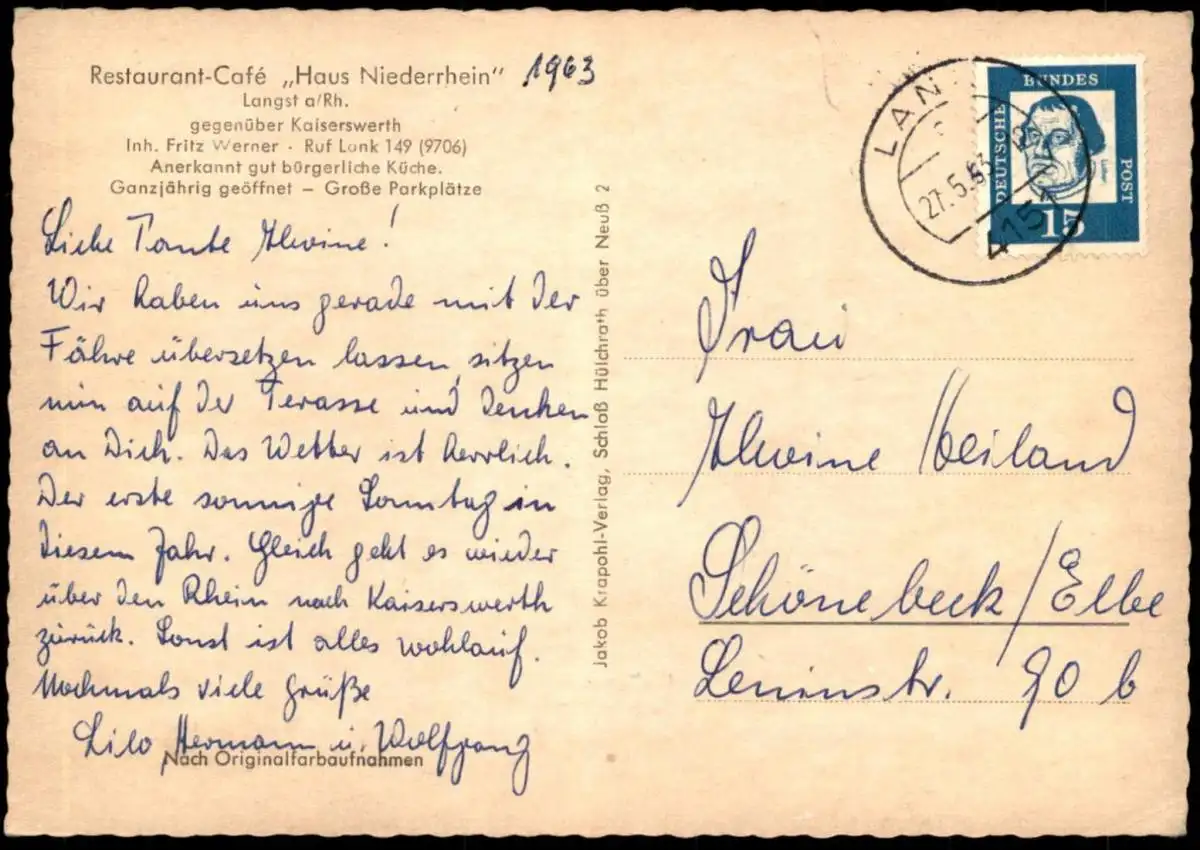 Restaurant-Café „Haus Niederrhein" 1963
Langst a/Rh.
gegenüber Kaiserswerth
Inh. Fritz Werner · Ruf Lank 149 (9706)
Anerkannt gut bürgerliche Küche.
Ganzjährig geöffnet – Große Parkplätze
Liebe Tante Alwine!
Wir haben uns gerade mit der
Fähre übersetzen lassen, sitzen
nun auf der Terasse und denken
an Dich. Das Wetter ist herrlich.
Der erste sonnige Sonntag in
diesem Jahr. Gleich geht es wieder
über den Rhein nach Kaiserswerth
zurück. Sonst ist alles wohlauf.
Nochmals viele Grüße
Lilo Hermann u. Wolfgang
Nach Originalfarbaufnahmen
Jakob Krapohl-Verlag, Schloß Hülchrath über Neuß 2
LAN
27.5.63
415
DEUTSCHE
BUNDES
POST
15
Frau
Alwine Weiland
Schönebeck/Elbe
Leninstr. 90 b